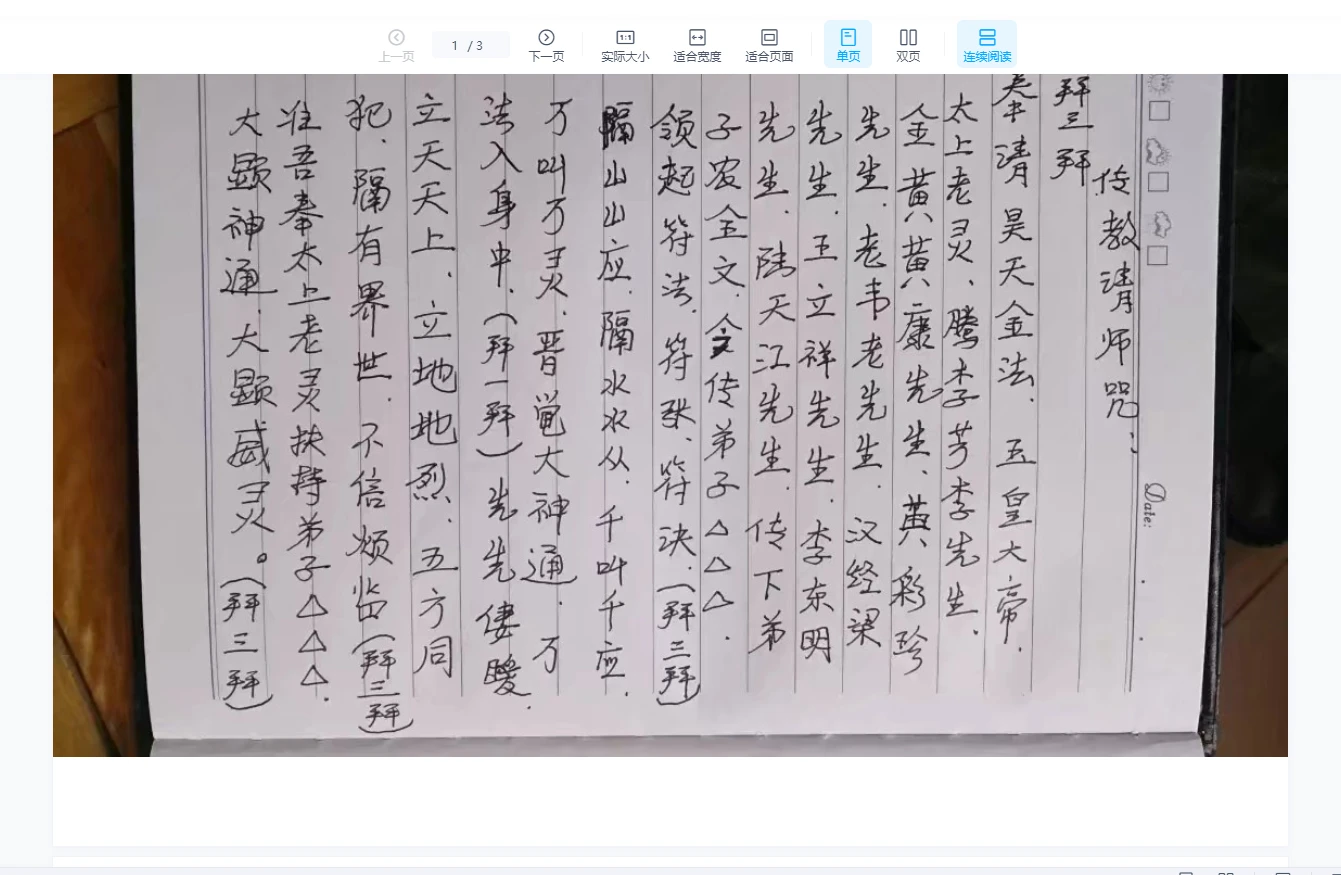 上一页
1 / 3
下一页
实际大小
适合宽度
适合页面
单页
双页
连续阅读
Date:
传教请师咒:
拜三拜
奉请昊天金法、玉皇大帝.
太上老灵、腾李芳李先生.
金黄八黄八康先生、黄彩珍
先生.老韦老先生.汉经梁
先生.王立祥先生.李东明
先生.陆天江先生.传下弟
子农全文.全文传弟子△△△.
领起符法.符 、符决.(拜三拜)
隔山山应.隔水水从.千叫千应.
万叫万灵.晋 大神通.万
法入身中.(拜一拜)先先偻 .
立天天上.立地地烈.五方同
犯.隔有界世.不信烦 (拜三拜)
准吾奉太上老灵扶持弟子△△△.
大显神通.大显威灵。(拜三拜)